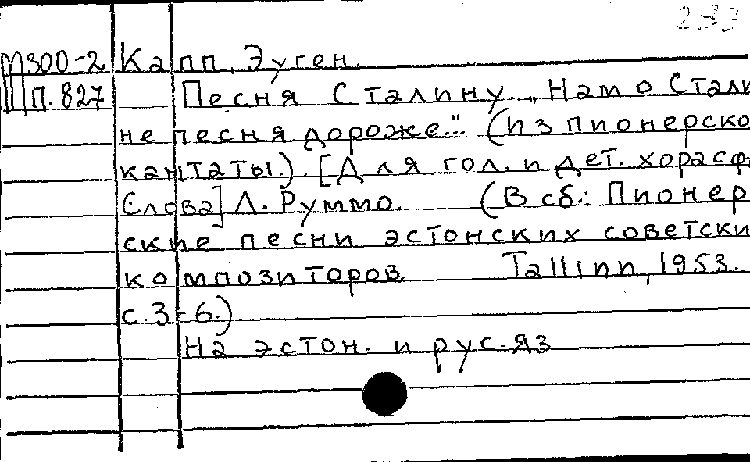 233
М300-2 Капп, Эуген.
III П.827 Песня Сталину „Нам о Стали
не песня дороже." (Из пионерско
кантаты.). [Для гол. и дет. хора с ф
Слова] Л. Руммо. (В сб.: Пионер
ские песни эстонских советски
композиторов Tallinn, 1953.
с. 3-6.)
На эстон. и рус. яз